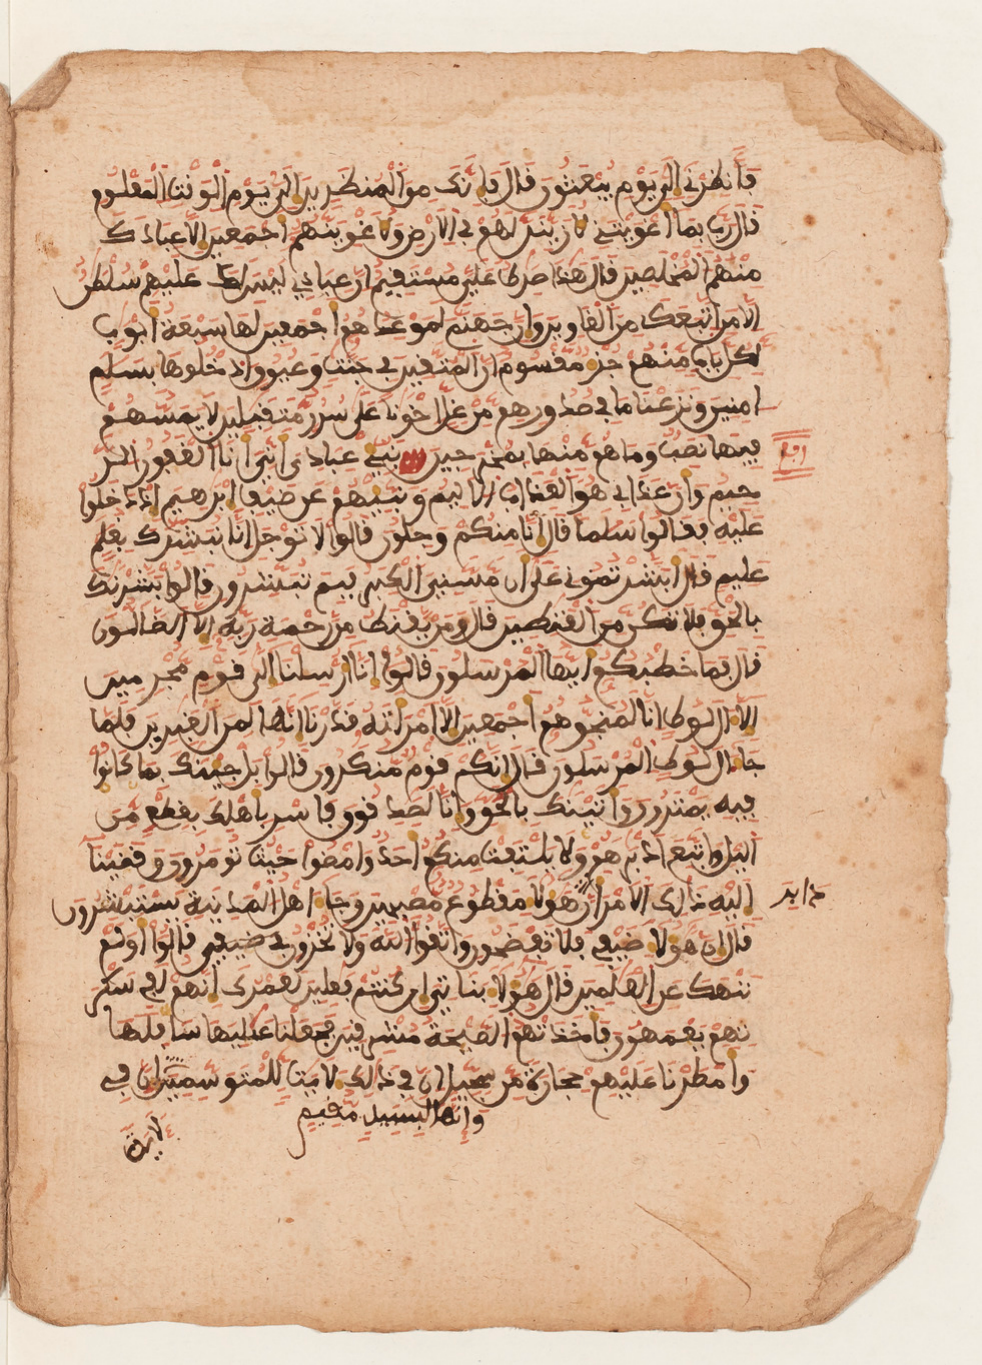 فأنظرني إلى يوم يبعثون قال فإنك من المنظرين إلى يوم الوقت المعلوم
قال رب بما أغويتني لأزينن لهم في الأرض ولأغوينهم أجمعين إلا عبادك
منهم المخلصين قال هذا صرط علي مستقيم إن عبادي ليس لك عليهم سلطن
إلا من اتبعك من الغاوين وإن جهنم لموعدهم أجمعين لها سبعة أبوب
لكل باب منهم جزء مقسوم إن المتقين في جنت وعيون ادخلوها بسلم
امنين ونزعنا ما في صدورهم من غل إخونا على سرر متقبلين لا يمسهم
فيها نصب وما هم منها بمخرجين نبئ عبادي أني أنا الغفور الر
حيم وأن عذابي هو العذاب الاليم ونبئهم عن ضيف ابرهيم إذ دخلوا
عليه فقالوا سلما قال إنا منكم وجلون قالوا لا توجل إنا نبشرك بغلم
عليم قال أبشرتموني على أن مسني الكبر فبم تبشرون قالوا بشرنك
بالحق فلا تكن من القنطين قال ومن يقنط من رحمة ربه إلا الضالون
قال فما خطبكم أيها المرسلون قالوا إنا أرسلنا إلى قوم مجرمين
إلا ال لوط إنا لمنجوهم أجمعين إلا امرأته قدرنا إنها لمن الغبرين فلما
جاء ال لوط المرسلون قال إنكم قوم منكرون قالوا بل جينك بما كانوا
فيه يمترون وأتينك بالحق وإنا لصدقون فاسر بأهلك بقطع من
اليل واتبع أدبرهم ولا يلتفت منكم أحد وامضوا حيث تومرون وقضينا
إليه ذلك الأمر أن دابر هؤلا مقطوع مصبحين وجاء اهل المدينة يستبشرون
قال إن هؤلا ضيفي فلا تفضحون واتقوا الله ولا تخزون قالوا أولم
ننهك عن العلمين قال هؤلا بناتي إن كنتم فعلين لعمرك إنهم لفي سكر
تهم يعمهون فأخذتهم الصيحة مشرقين فجعلنا عليها سافلها
وأمطرنا عليهم حجارة من سجيل إن في ذلك لايت للمتوسمين
وإنها لبسبيل مقيم
لاية